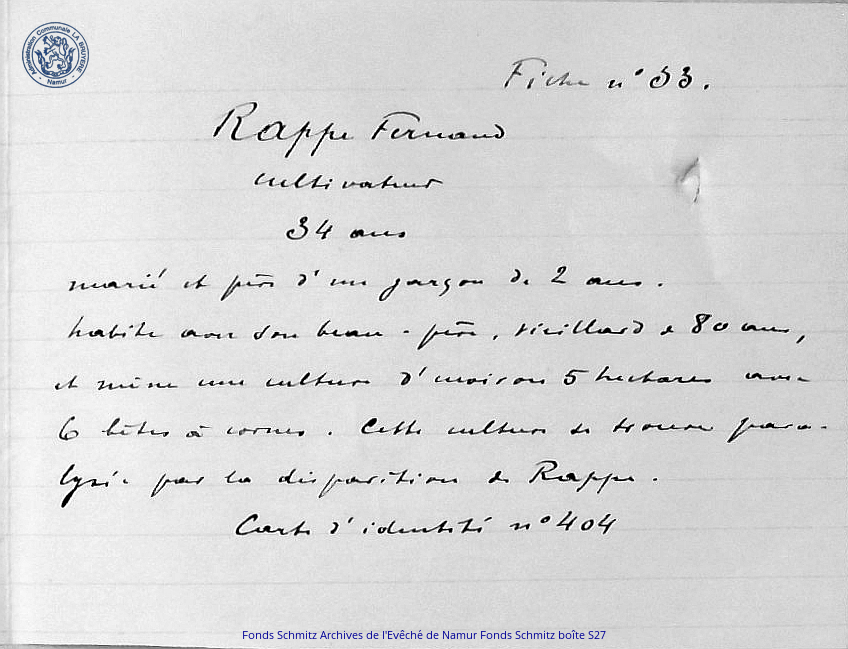 Administration Communale LA BRUYERE
- Namur -
Fiche n° 33.
Rappe Fernand
cultivateur
34 ans
marié et père d'un garçon de 2 ans.
habite avec son beau-père, vieillard de 80 ans,
et mène une culture d'environ 5 hectares avec
6 bêtes à cornes. Cette culture se trouve para-
lysée par la disparition de Rappe.
Carte d'identité n° 404
Fonds Schmitz Archives de l'Evêché de Namur Fonds Schmitz boîte S27